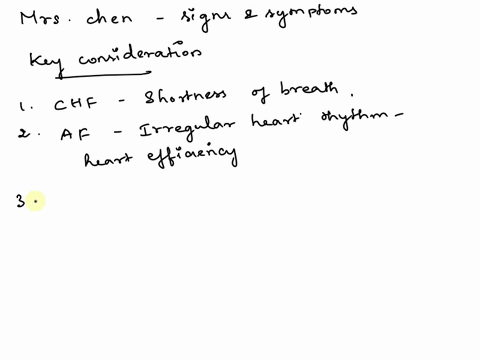 Mrs. chen - signs & symptoms
Key consideration
1. CHF - Shortness of breath.
2. AF - Irregular heart rhythm -
heart efficiency
3.